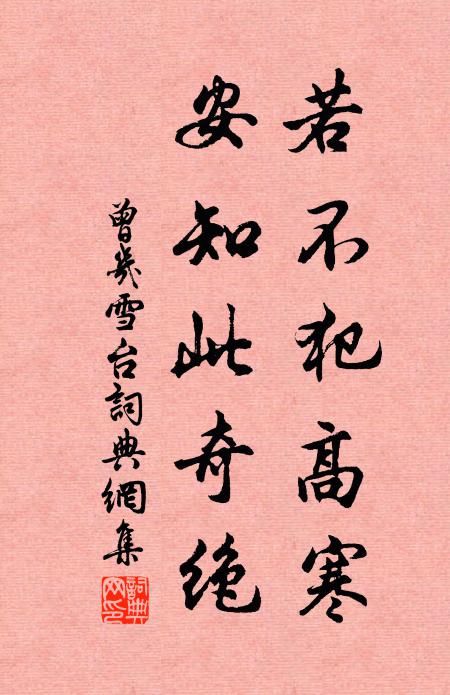 若不犯高寒
安知此奇绝
曾幾雪台詞典網集
詞典网印